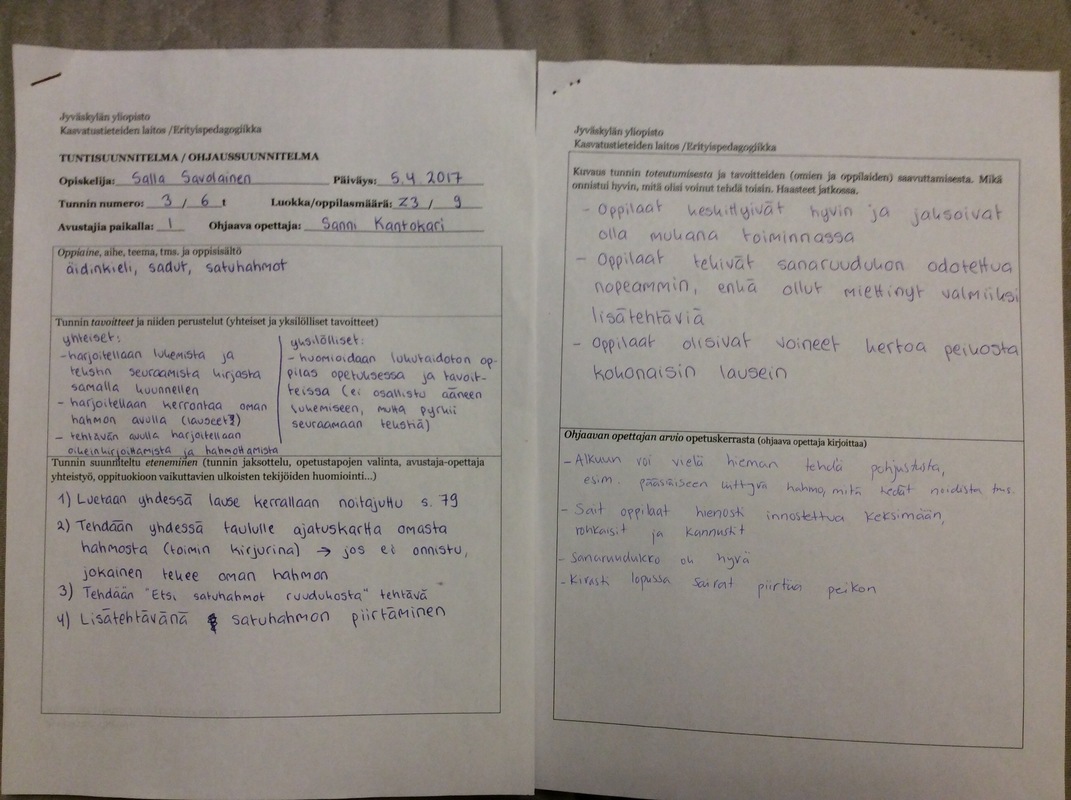 Jyväskylän yliopisto
Kasvatustieteiden laitos /Erityispedagogiikka
TUNTISUUNNITELMA / OHJAUSSUUNNITELMA
Opiskelija: Salla Savolainen Päiväys: 5.4.2017
Tunnin numero: 3 / 6 t Luokka/oppilasmäärä: Z3 / 9
Avustajia paikalla: 1 Ohjaava opettaja: Sanni Kantokari
Oppiaine, aihe, teema, tms. ja oppisisältö
äidinkieli, sadut, satuhahmot
Tunnin tavoitteet ja niiden perustelut (yhteiset ja yksilölliset tavoitteet)
yhteiset:
- harjoitellaan lukemista ja
tekstin seuraamista kirjasta
samalla kuunnellen
- harjoitellaan kerrontaa oman
hahmon avulla (lauseet)
- tehtävän avulla harjoitellaan
oikeinkirjoittamista ja hahmottamista
yksilölliset:
- huomioidaan lukutaidoton op-
pilas opetuksessa ja tavoit-
teissa (ei osallistu ääneen
lukemiseen, mutta pyrkii
seuraamaan tekstiä)
Tunnin suunniteltu eteneminen (tunnin jaksottelu, opetustapojen valinta, avustaja-opettaja
yhteistyö, oppituokioon vaikuttavien ulkoisten tekijöiden huomiointi...)
1) Luetaan yhdessä lause kerrallaan noitajuttu s. 79
2) Tehdään yhdessä taululle ajatuskartta omasta
hahmosta (toimin kirjurina) → jos ei onnistu,
jokainen tekee oman hahmon
3) Tehdään "Etsi satuhahmot ruudukosta" tehtävä
4) Lisätehtävänä satuhahmon piirtäminen
Jyväskylän yliopisto
Kasvatustieteiden laitos /Erityispedagogiikka
Kuvaus tunnin toteutumisesta ja tavoitteiden (omien ja oppilaiden) saavuttamisesta. Mikä
onnistui hyvin, mitä olisi voinut tehdä toisin. Haasteet jatkossa.
- Oppilaat keskittyivät hyvin ja jaksoivat
olla mukana toiminnassa
- Oppilaat tekivät sanaruudukon odotettua
nopeammin, enkä ollut miettinyt valmiiksi
lisätehtäviä
- Oppilaat olisivat voineet kertoa peikosta
kokonaisin lausein
Ohjaavan opettajan arvio opetuskerrasta (ohjaava opettaja kirjoittaa)
- Alkuun voi vielä hieman tehdä pohjustusta,
esim. pääsiäiseen liittyvä hahmo, mitä tiedät noidista tms.
- Sait oppilaat hienosti innostettua keksimään,
rohkaisit ja kannustit
- Sanaruudukko oli hyvä
- Kivasti lopussa saivat piirtää peikon